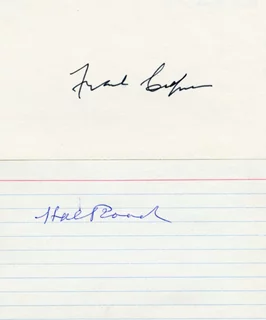 Frank Capra
Hal Roach